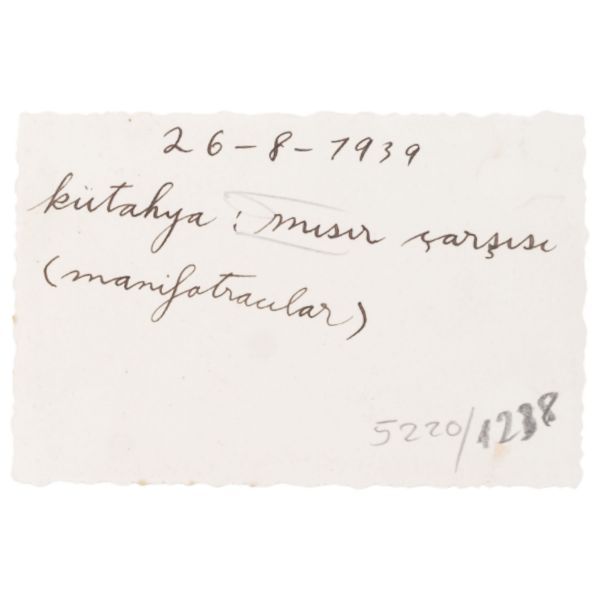 26-8-1939
kütahya : mısır çarşısı
(manifotracılar)
5220/1238